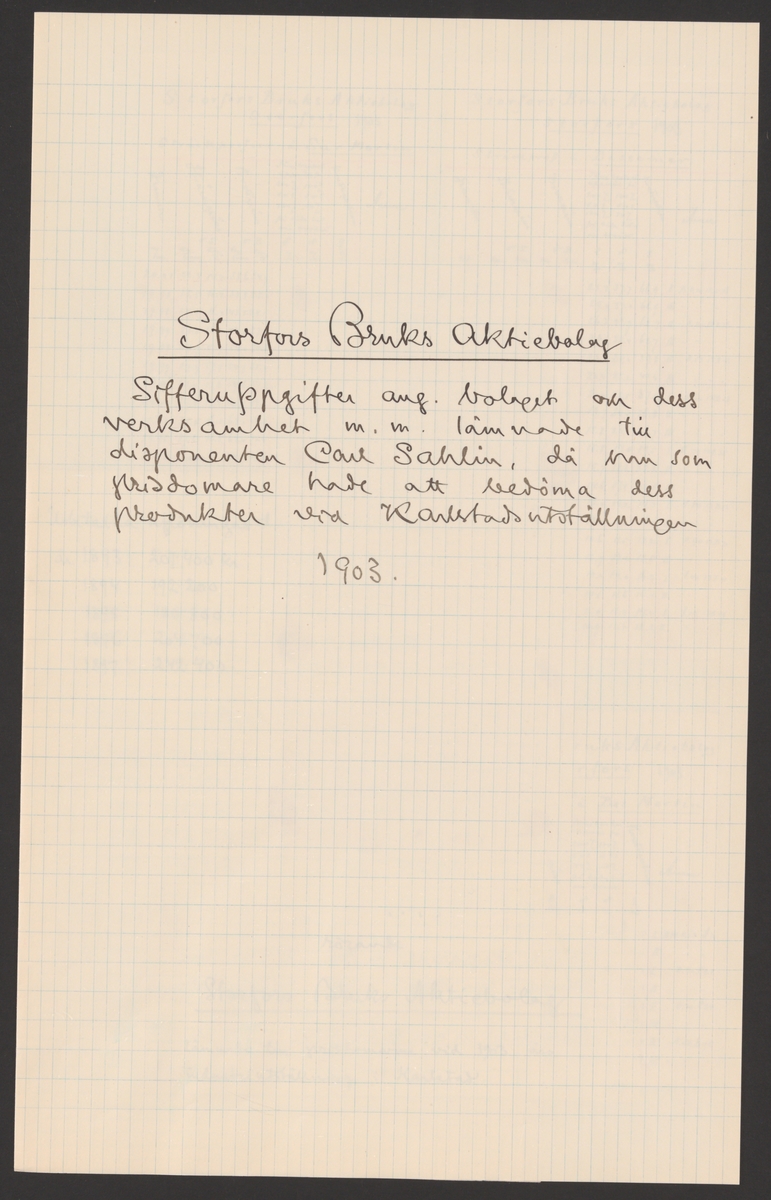 Storfors Bruks Aktiebolag
Sifferuppgifter ang. bolaget och dess
verksamhet m.m. lämnade till
disponenten Carl Sahlin, då han som
prisdomare hade att bedöma dess
produkter vid Karlstadsutställningen
1903.